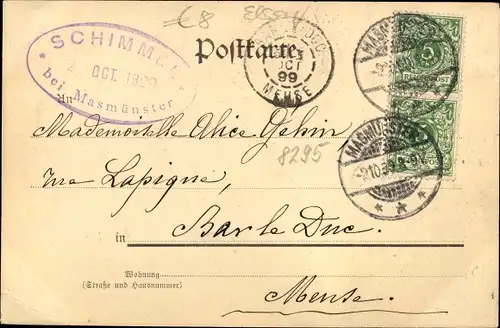 €8
SCHIMMEL
2 OCT. 1899
bei Masmünster
Postkarte
BAR-LE-DUC
OCT
99
MEUSE
MASMÜNSTER
REICHSPOST
MASMÜNSTER
2.10.99. 8-9V.
An
Mademoiselle Alice Gehin
8295
rue Lapique,
in Bar le Duc.
Wohnung
(Straße und Hausnummer)
Meuse.